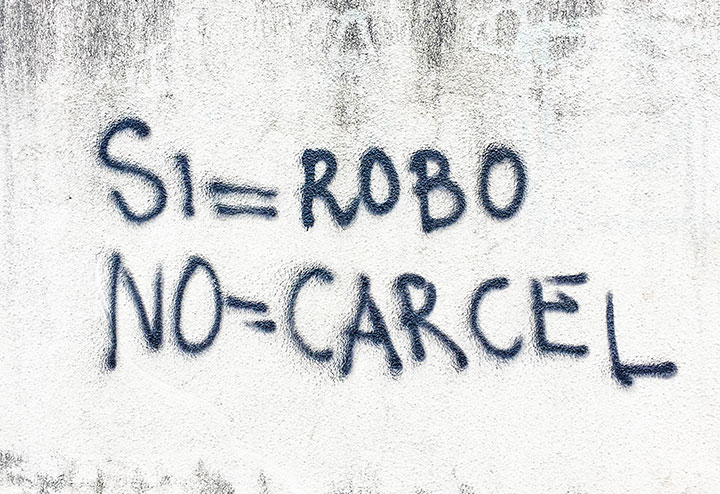 SI=ROBO
NO=CARCEL